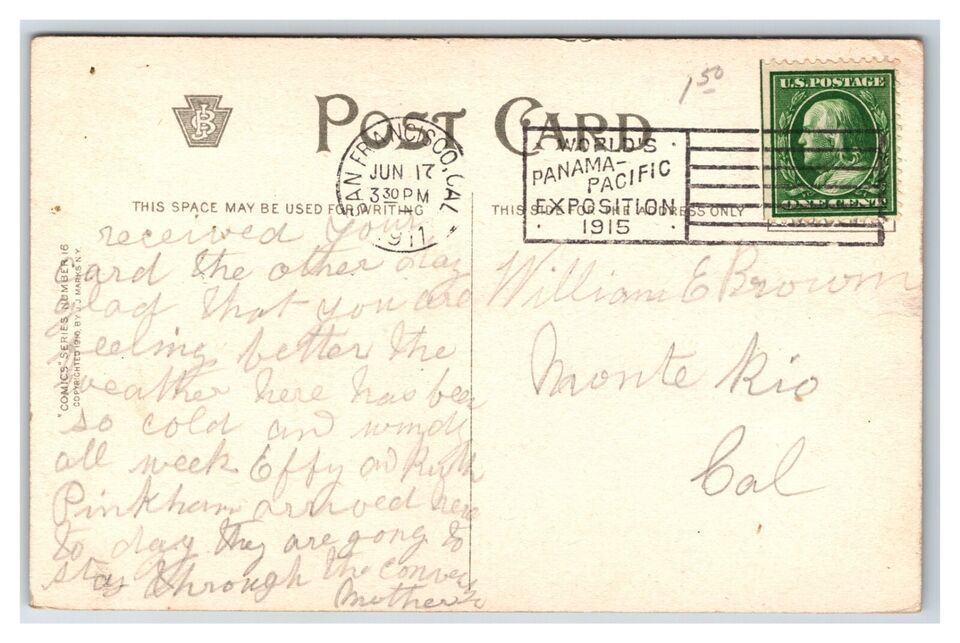 1 50
U.S. POSTAGE
ONE CENT
POST CARD
SAN FRANCISCO, CAL
JUN 17
3 30 PM
1911
WORLD'S
PANAMA-
PACIFIC
EXPOSITION
1915
THIS SPACE MAY BE USED FOR WRITING
THIS SIDE FOR THE ADDRESS ONLY
"COMICS" SERIES NUMBER 16
COPYRIGHTED 1910, BY J.J. MARKS N.Y.
received your
card the other day
glad that you are
feeling better the
weather here has been
so cold and windy
all week Effy and Ruth
Pinkham arrived here
to day they are gong to
stay through the
Mother
William E Brown
Monte Rio
Cal